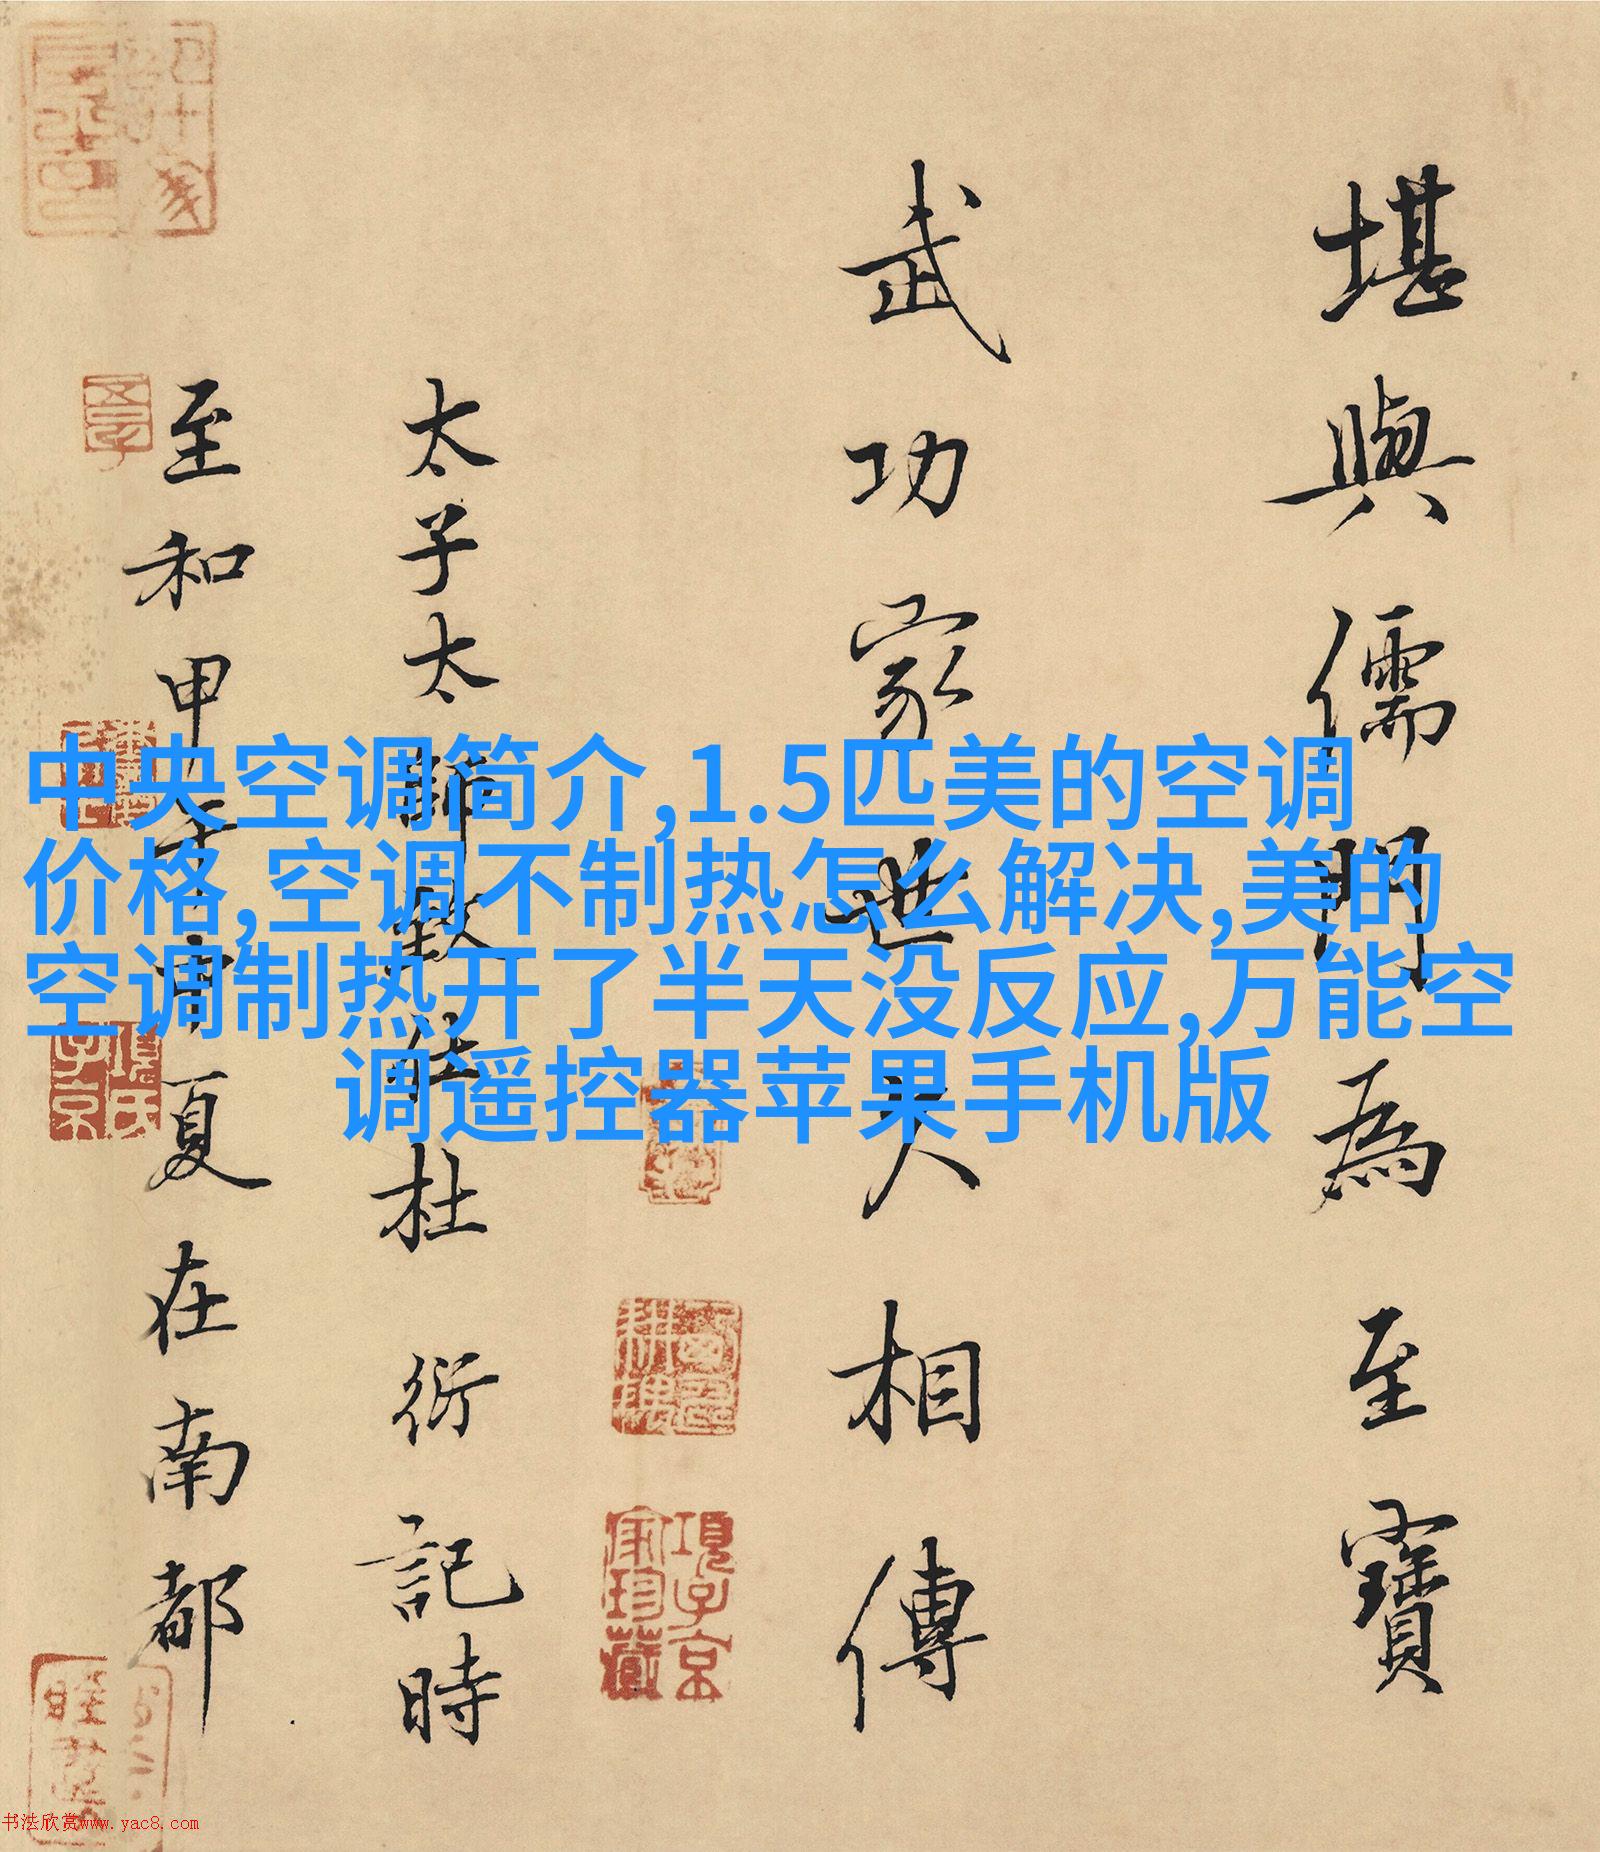 中央空调简介,1.5匹美的空调
价格,空调不制热怎么解决,美的
空调制热开了半天没反应,万能空
调遥控器苹果手机版
堪輿儒門為至寶
武功家世久相傳
太子太師致仕杜衍記時
至和甲午季夏在南都
項子京家珍藏
項氏子京
書法欣赏www.yac8.com